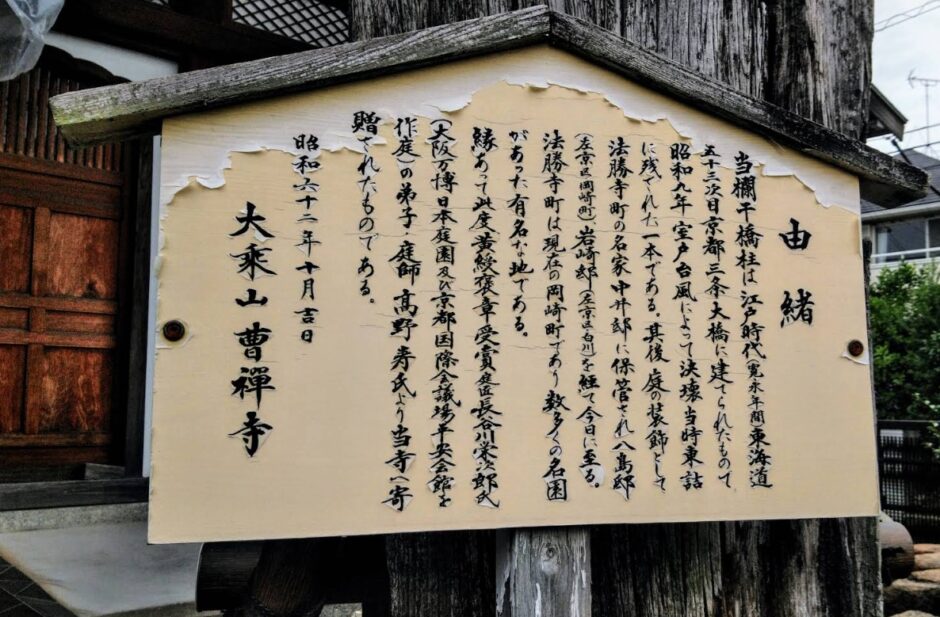 由緒
当欄干橋柱は、江戸時代(寛永年間)東海道
五十三次目京都三条大橋に建てられたもので
昭和九年室戸台風によって決壊当時東詰
に残された一本である。其後庭の装飾として
法勝寺町の名家中井邸に保管され八島邸
(左京区岡崎町)、岩崎邸(左京区白川)を経て今日に至る。
法勝寺町は現在の岡崎町であり数多くの名園
があった有名な地である。
縁あって此度黄綬褒章受賞庭匠長谷川栄次郎氏
(大阪万博日本庭園及び京都国際会議場平安会館を
作庭)の弟子、庭師高野寿氏より当寺へ寄
贈されたものである。
昭和六十二年十月吉日
大乘山曹禅寺